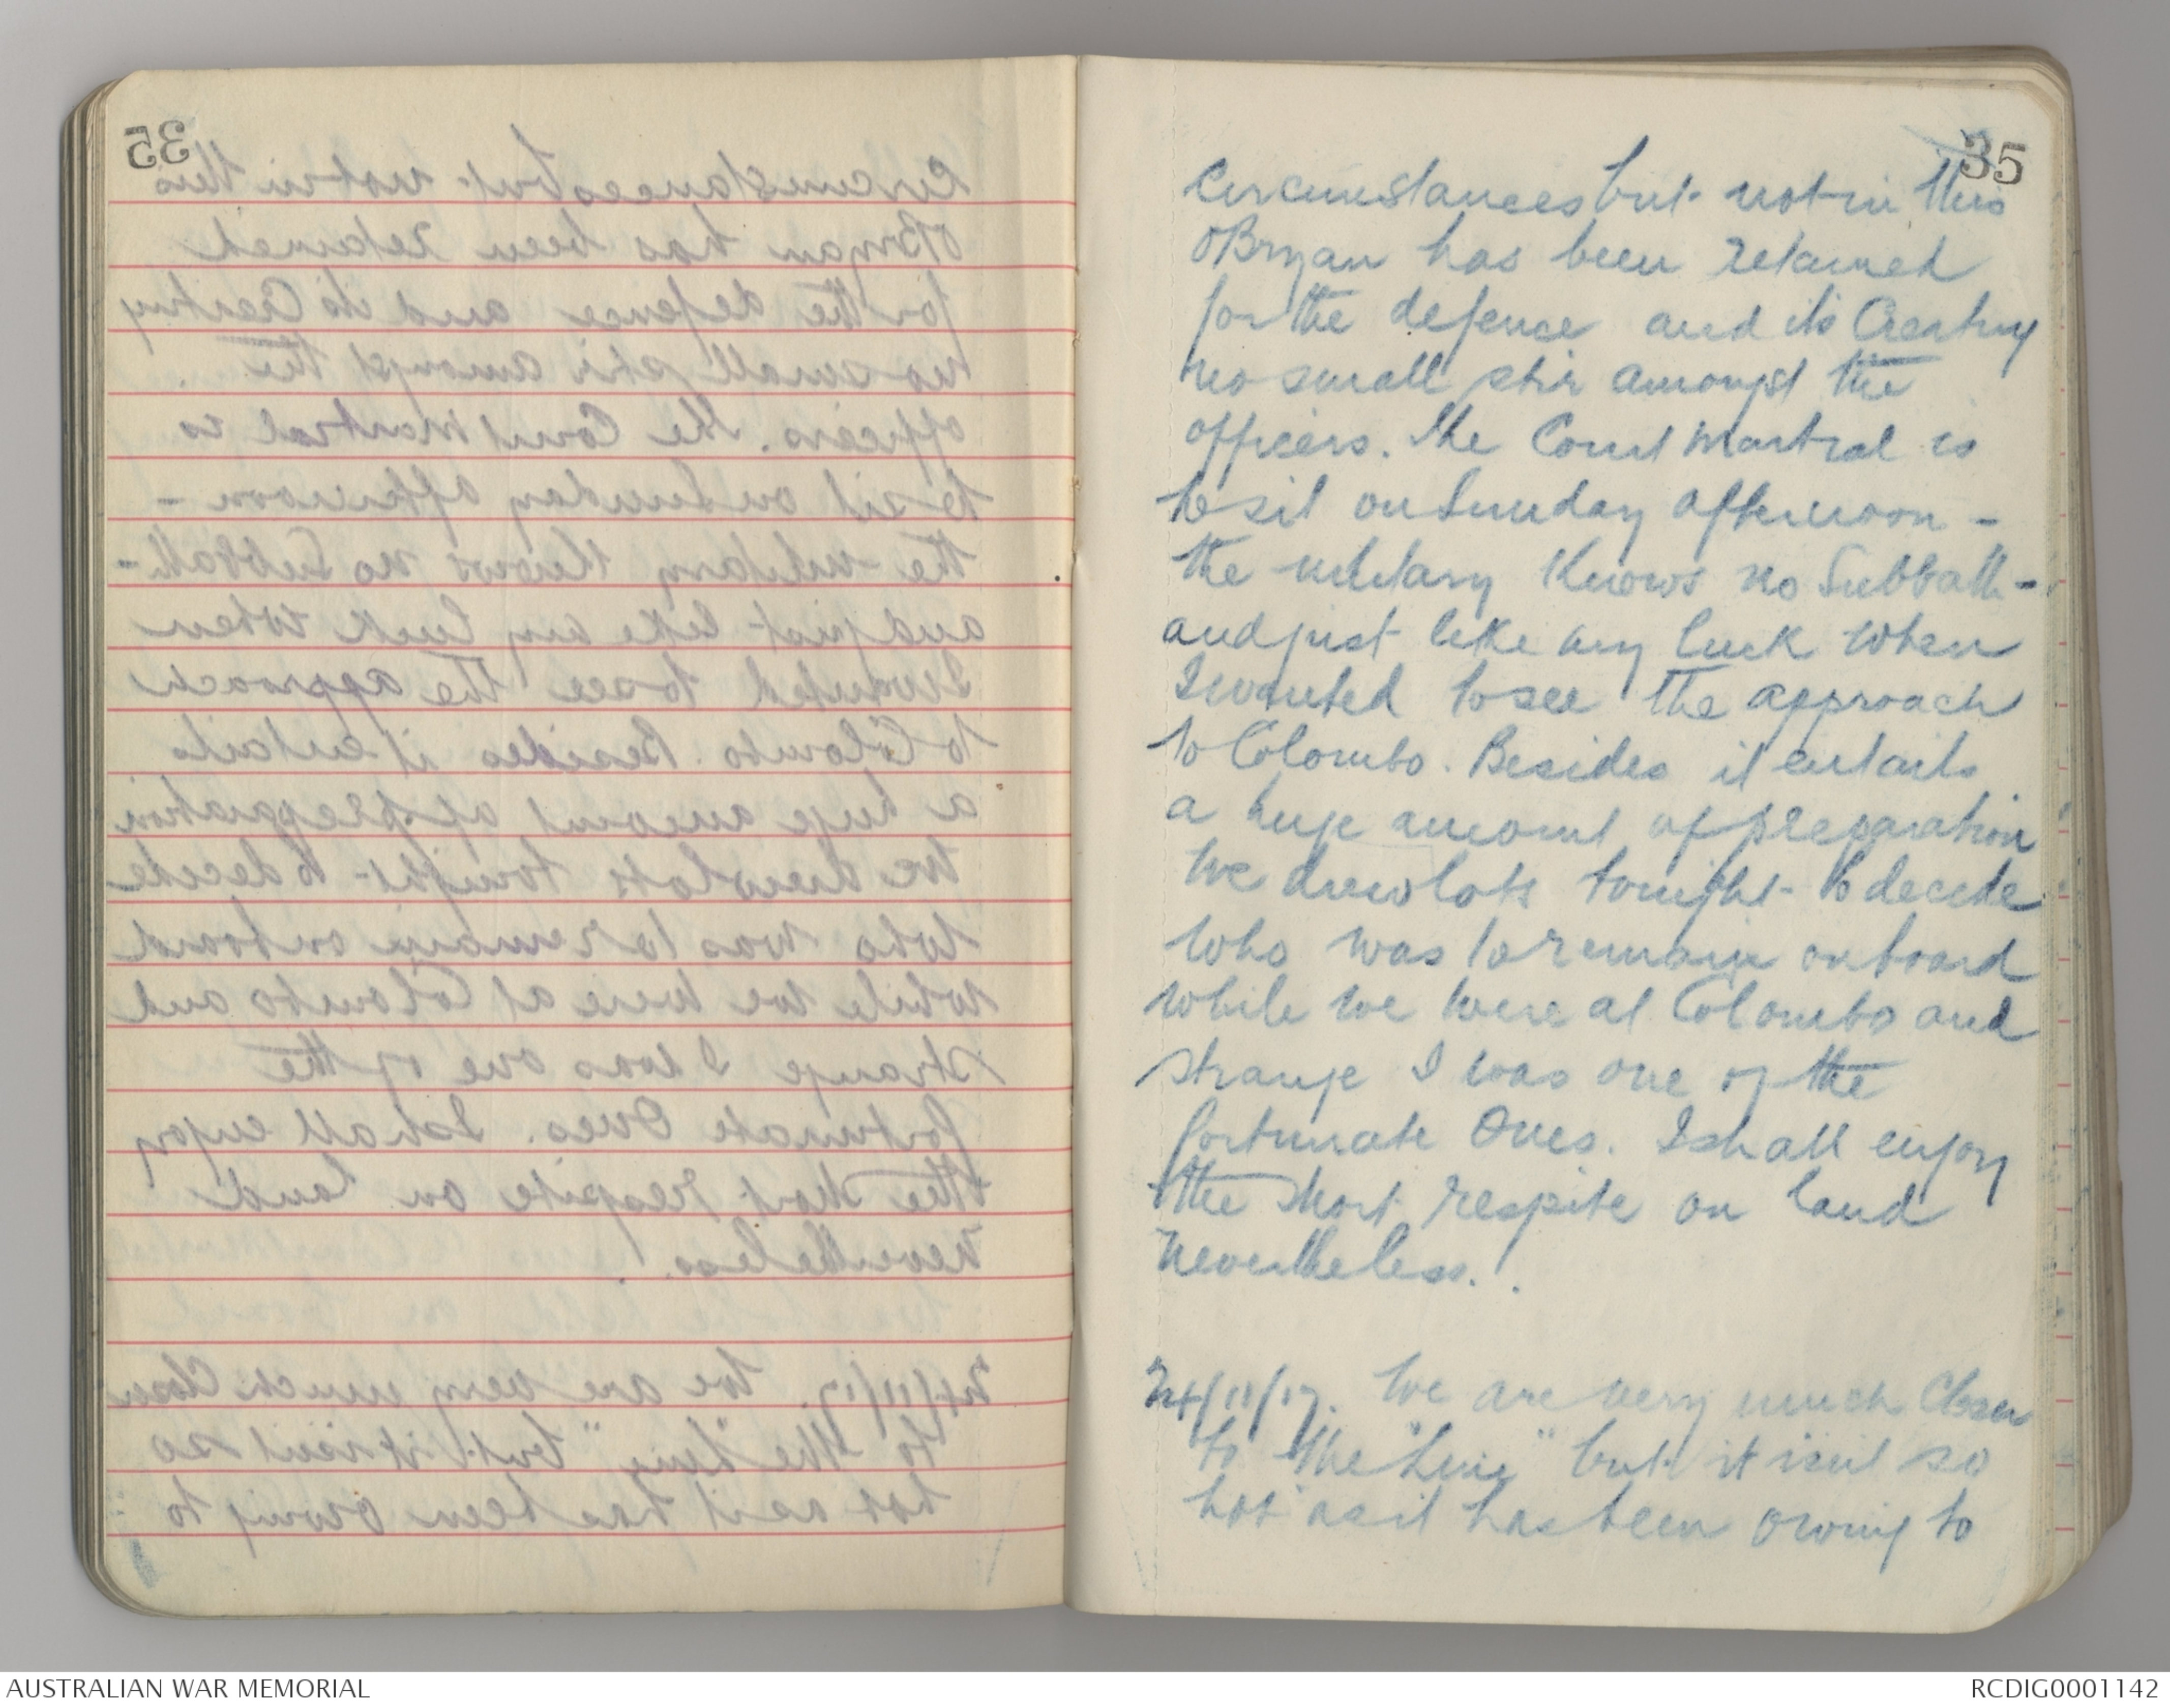 35
circumstances but not in this
O'Bryan has been retained
for the defence and its creating
no small stir amongst the
officers. The Court Martial is
to sit on Sunday afternoon -
the military knows no Subbath -
and just like my luck when
I wanted to see the approach
to Colombo. Besides it entails
a huge amount of preparation
We drew lots tonight to decide
who was to remain on board
while we were at Colombo and
strange I was one of the
fortunate Ones. I shall enjoy
the short respite on land
nevertheless.
24/11/17. We are very much closer
to "the Line" but it isnt so
hot as it has been owing to
AUSTRALIAN WAR MEMORIAL
RCDIG0001142